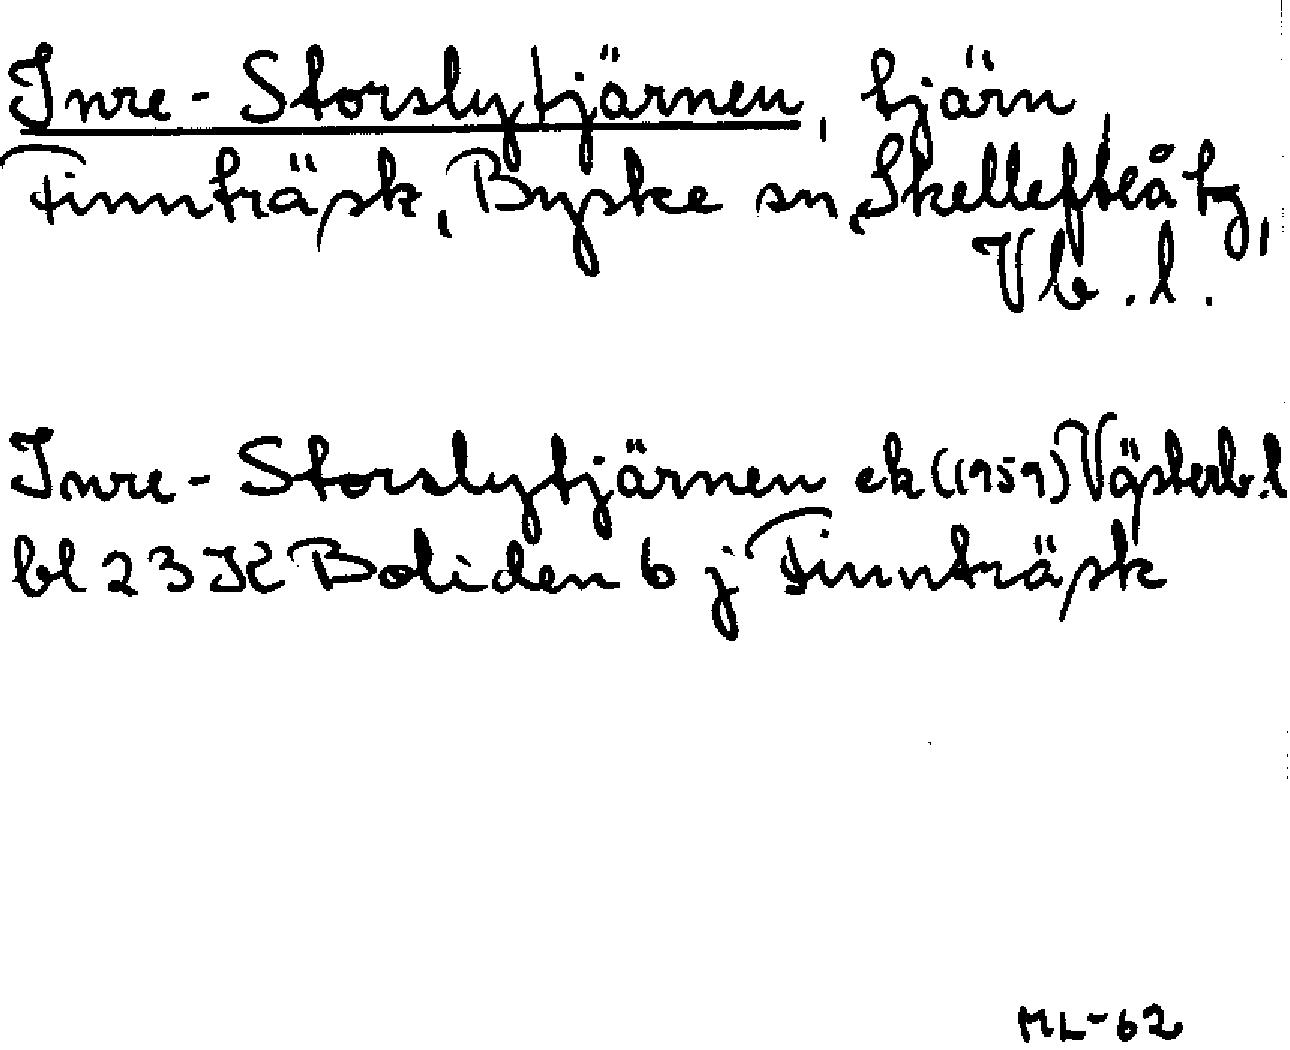 Inre-Storslytjärnen, tjärn
Finnträsk, Byske sn, Skellefteå tg,
Vb. l.
Inre-Storslytjärnen ek (1959) Västerb. l
bl 23 K Boliden 6 j Finnträsk
ML-62